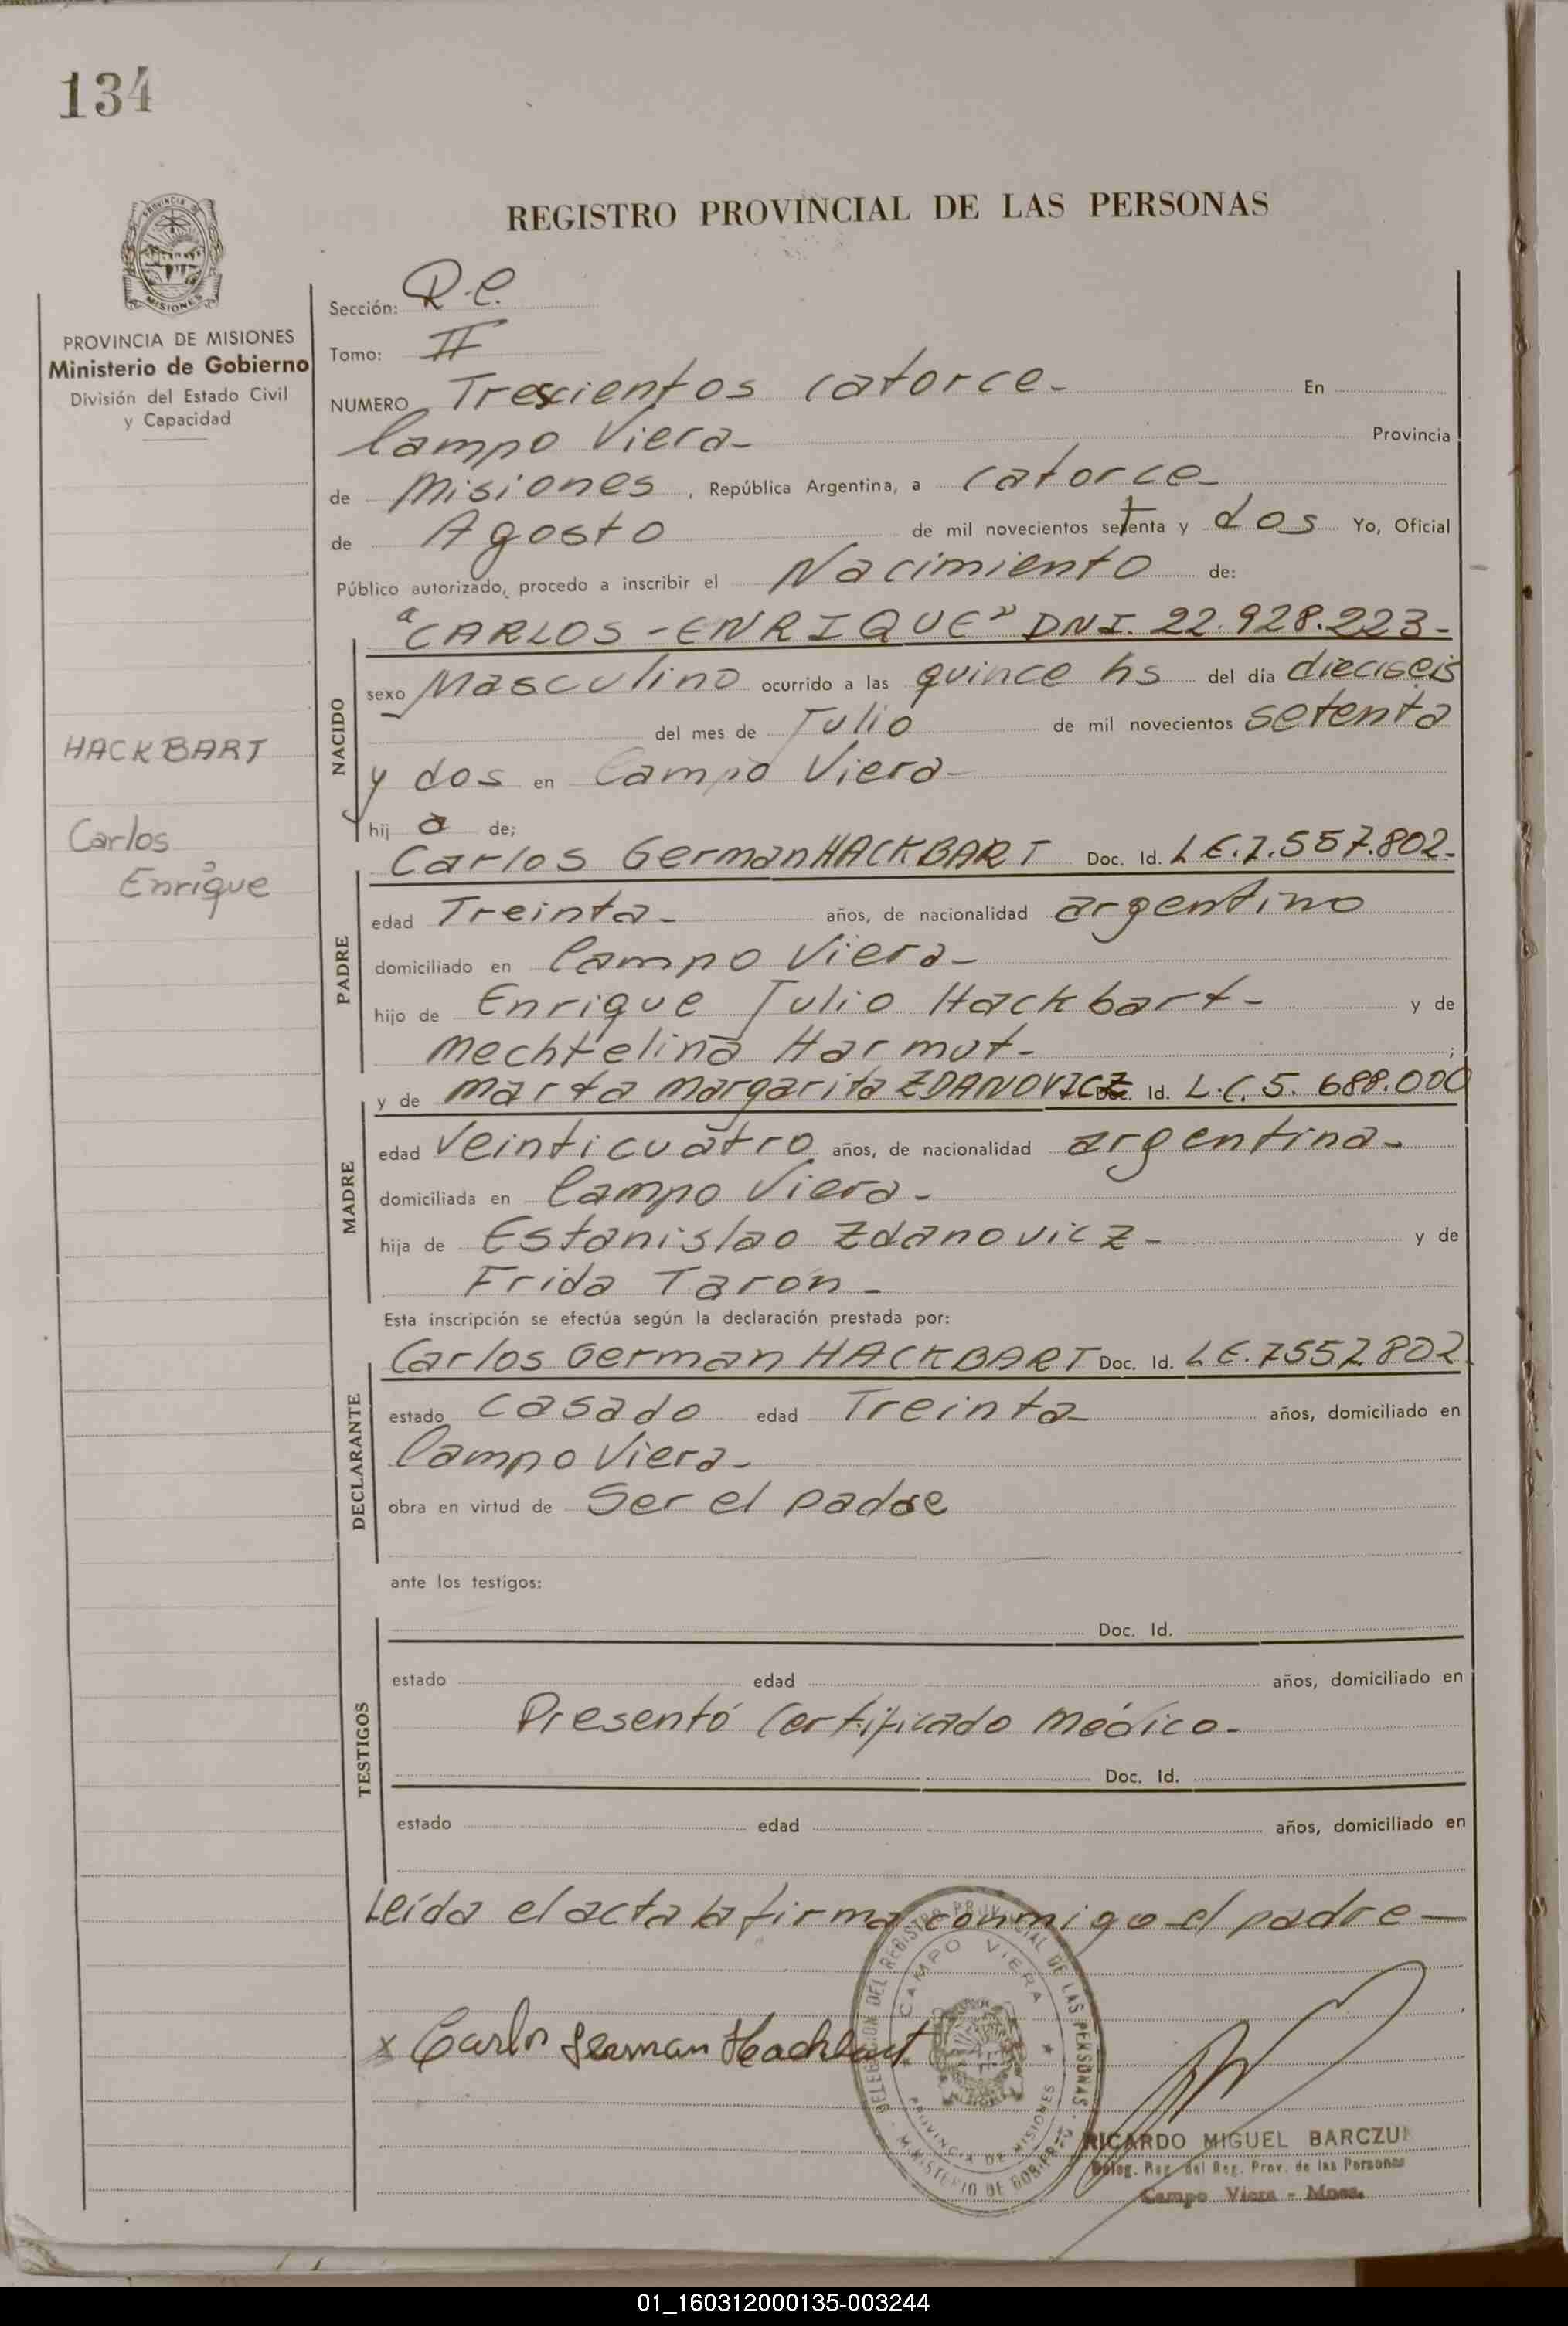 134
REGISTRO PROVINCIAL DE LAS PERSONAS
PROVINCIA DE MISIONES
Ministerio de Gobierno
División del Estado Civil
y Capacidad
HACKBART
Carlos
Enrique
Sección: R.C.
Tomo: II
NUMERO Trescientos catorce- En
Campo Viera- Provincia
de Misiones, República Argentina, a catorce-
de Agosto de mil novecientos setenta y dos Yo, Oficial
Público autorizado, procedo a inscribir el Nacimiento de:
"CARLOS-ENRIQUE" DNI. 22.928.223-
NACIDO
sexo Masculino ocurrido a las quince hs del día dieciseis
del mes de Julio de mil novecientos setenta
y dos en Campo Viera-
hij o de;
PADRE
Carlos German HACKBART Doc. Id. L E. 7.557.802-
edad Treinta- años, de nacionalidad argentino
domiciliado en Campo Viera-
hijo de Enrique Julio Hackbart- y de
Mechtelina Harmut- ;
MADRE
y de Marta Margarita ZDANOVICZ Doc. Id. L.C. 5. 688.000
edad Veinticuatro años, de nacionalidad argentina-
domiciliada en Campo Viera-
hija de Estanislao Zdanovicz- y de
Frida Taron-
Esta inscripción se efectúa según la declaración prestada por:
DECLARANTE
Carlos German HACKBART Doc. Id. L E. 7557802
estado casado edad Treinta- años, domiciliado en
Campo Viera-
obra en virtud de Ser el padre
ante los testigos:
TESTIGOS
Doc. Id.
estado edad años, domiciliado en
Presentó Certificado Médico-
Doc. Id.
estado edad años, domiciliado en
Leída el acta la firma conmigo el padre-
x Carlos German Hackbart
DELEGACION DEL REGISTRO PROVINCIAL DE LAS PERSONAS
CAMPO VIERA
PROVINCIA DE MISIONES
MINISTERIO DE GOBIERNO
RICARDO MIGUEL BARCZUK
Deleg. Reg. del Reg. Prov. de las Personas
Campo Viera - Mnes.
01_160312000135-003244